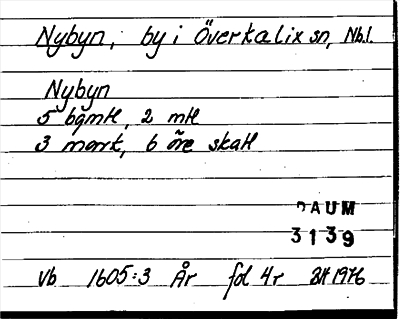 Nybyn, by i Överkalix sn, Nb.l.
Nybyn
5 bgmtl, 2 mtl
3 mark, 6 öre skatt
DAUM
3139
Vb 1605:3 År fol 4r 1976